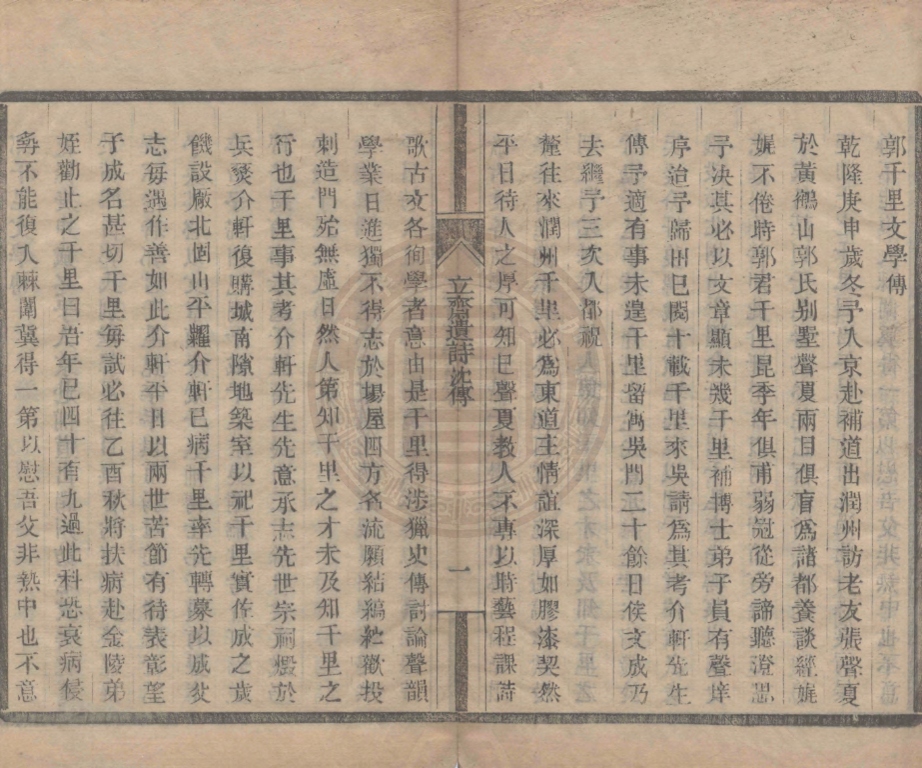 郭千里文學傳
乾隆庚申歲冬予入京赴補道出潤州訪老友張聲夏
於黃鶴山郭氏别墅聲夏兩目俱盲為諸都養談經娓
娓不倦時郭君千里昆季年俱甫弱冠從旁諦聽澄思
予决其必以文章顯未幾千里補博士弟子員有聲庠
序洎予歸田已閱十載千里來吳請為其考介軒先生
傳予適有事未遑千里留寓吳門三十餘日俟文成乃
去繼予三次入都祝
釐往來潤州千里必為東道主情誼深厚如膠漆契然
平日待人之厚可知已聲夏教人不專以時藝程課詩
立齋遺詩 沈傳
一
歌古文各徇學者意由是千里得涉獵史傳討論聲韻
學業日進獨不得志於場屋四方名流願結縞紵歡投
刺造門殆無虛日然人第知千里之才未及知千里之
行也千里事其考介軒先生先意承志先世宗祠燬於
兵燹介軒復購城南隙地築室以祀千里實佐成之歲
饑設厰北固山平糶介軒已病千里率先轉募以成父
志每遇作善如此介軒平日以兩世苦節有待表彰望
子成名甚切千里每試必往乙酉秋將扶病赴金陵弟
姪勸止之千里曰吾年已四十有九過此科恐衰病侵
尋不能復入棘闈冀得一第以慰吾父非熱中也不意